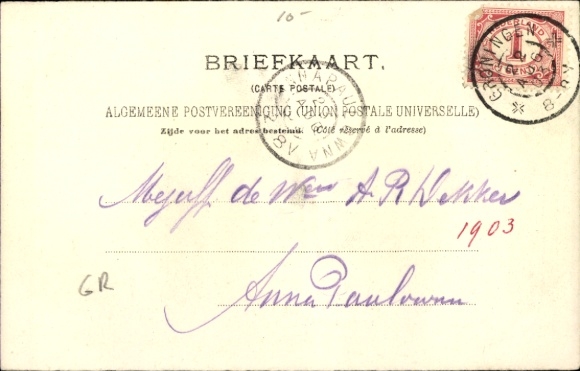 10-
NEDERLAND
1
CENT
GRONINGEN
BRIEFKAART.
(CARTE POSTALE)
ANNA PAULOWNA
ALGEMEENE POSTVEREENIGING (UNION POSTALE UNIVERSELLE)
Zijde voor het adres bestemd. (Côté réservé à l'adresse)
Mejuff. de Wed A R Dekker
1903
GR
Anna Paulowna